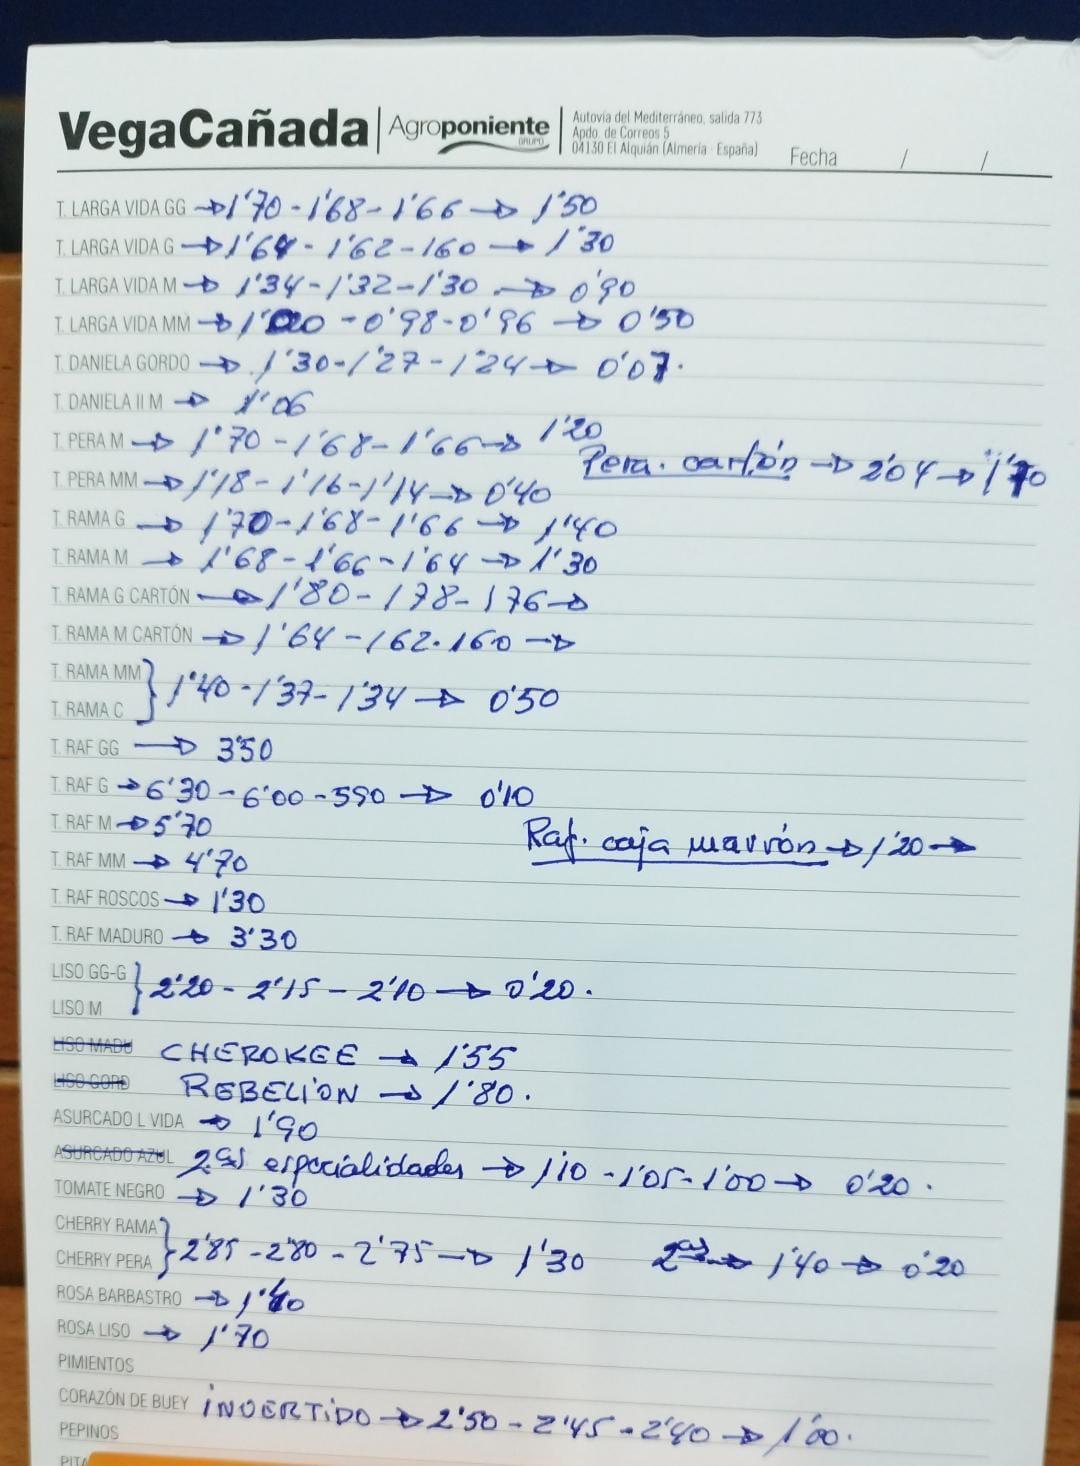 VegaCañada | Agroponiente GRUPO
Autovía del Mediterráneo, salida 773
Apdo. de Correos 5
04130 El Alquián (Almería - España)
Fecha / /
T. LARGA VIDA GG → 1'70 - 1'68 - 1'66 → 1'50
T. LARGA VIDA G → 1'64 - 1'62 - 160 → 1'30
T. LARGA VIDA M → 1'34 - 1'32 - 1'30 → 0'90
T. LARGA VIDA MM → 1'00 - 0'98 - 0'96 → 0'50
T. DANIELA GORDO → 1'30 - 1'27 - 1'24 → 0'07.
T. DANIELA II M → 1'06
T. PERA M → 1'70 - 1'68 - 1'66 → 1'20
Pera. cartón → 2'04 → 1'70
T. PERA MM → 1'18 - 1'16 - 1'14 → 0'40
T. RAMA G → 1'70 - 1'68 - 1'66 → 1'40
T. RAMA M → 1'68 - 1'66 - 1'64 → 1'30
T. RAMA G CARTÓN → 1'80 - 178 - 176 →
T. RAMA M CARTÓN → 1'64 - 162. 160 →
T. RAMA MM
T. RAMA C } 1'40 - 1'37 - 1'34 → 0'50
T. RAF GG → 3'50
T. RAF G → 6'30 - 6'00 - 590 → 0'10
T. RAF M → 5'70
Raf. caja marrón → 1'20 →
T. RAF MM → 4'70
T. RAF ROSCOS → 1'30
T. RAF MADURO → 3'30
LISO GG-G
LISO M } 2'20 - 2'15 - 2'10 → 0'20.
LISO MADU CHEROKEE → 1'55
LISO GORD REBELIÓN → 1'80.
ASURCADO L VIDA → 1'90
ASURCADO AZUL 2as especialidades → 1'10 - 1'05 - 1'00 → 0'20.
TOMATE NEGRO → 1'30
CHERRY RAMA
CHERRY PERA } 2'85 - 2'80 - 2'75 → 1'30 2as → 1'40 → 0'20
ROSA BARBASTRO → 1'40
ROSA LISO → 1'70
PIMIENTOS
CORAZÓN DE BUEY INVERTIDO → 2'50 - 2'45 - 2'40 → 1'00.
PEPINOS